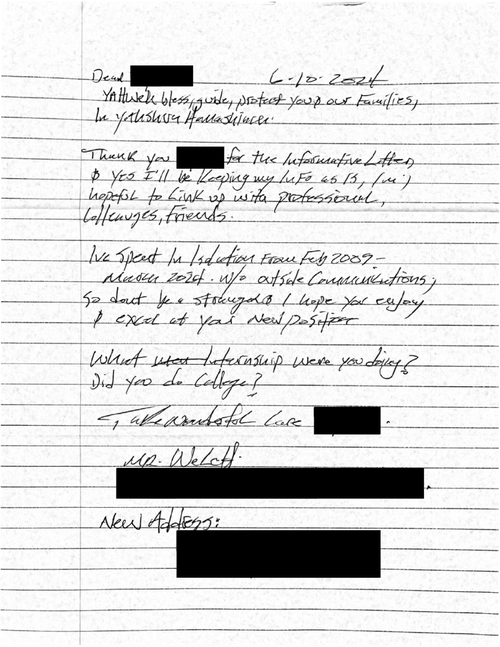 Dear 6-10-2024
YAHWeh bless, guide, protect you & our Families,
In Yahshua Hamashiach.
Thank you for the Informative Letter
& yes I'll be keeping my Info as is, I'm
hopeful to Link up with professional,
Colleauges, Friends.
Ive Spent In Isolation From Feb 2009 -
March 2024. w/o outside Communications,
So dont be a stranger & I hope you enjoy
& excel at your New position
What Internship were you doing?
Did you do College?
Take wonderful Care .
Mr. Welch.
New Address: